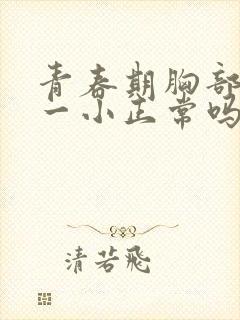 青春期胸部
一小正常吗
清若飛